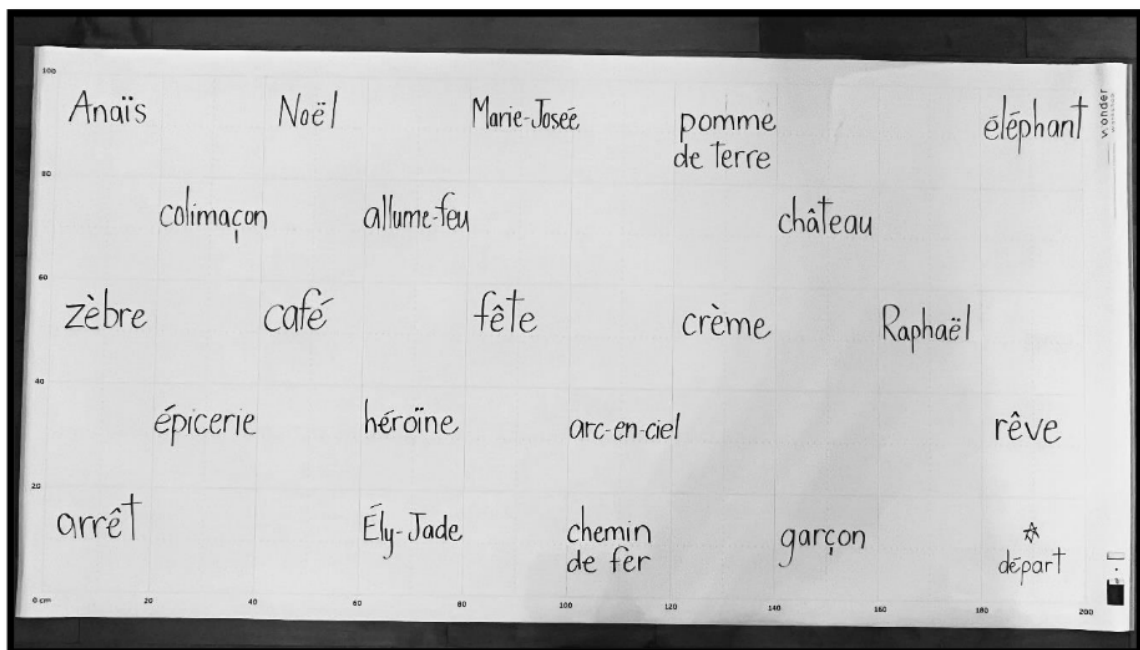 100
Anaïs Noël Marie-Josée pomme de terre éléphant
wonder
80
colimaçon allume-feu château
60
zèbre café fête crème Raphaël
40
épicerie héroïne arc-en-ciel rêve
20
arrêt Ély-Jade chemin de fer garçon départ
0 cm 20 40 60 80 100 120 140 160 180 200